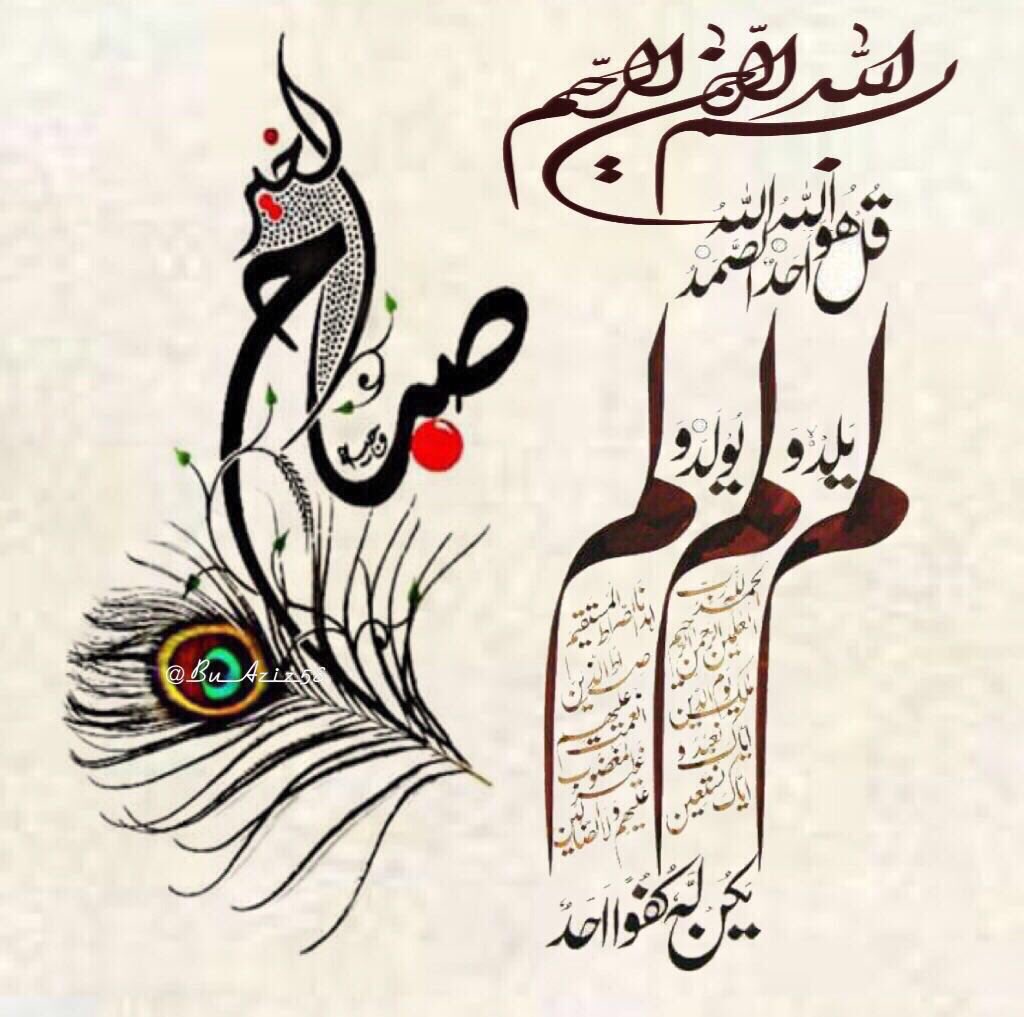 بسم الله الرحمن الرحيم
قُل هُوَ اللهُ اَحَدٌ اللهُ الصَّمَدُ
لم يَلِدْ وَ لم يُولَدْ وَ لم
الحمد لله رب
العلمين الرحمن الرحيم
ملك يوم الدين
اياك نعبد و
اياك نستعين
اهدنا الصراط المستقيم
صراط الذين
انعمت عليهم
غير المغضوب
عليهم ولا الضالين
يَكُن لَّهُ كُفُوًا اَحَدٌ
صباح
الخير
@Bu_Aziz58